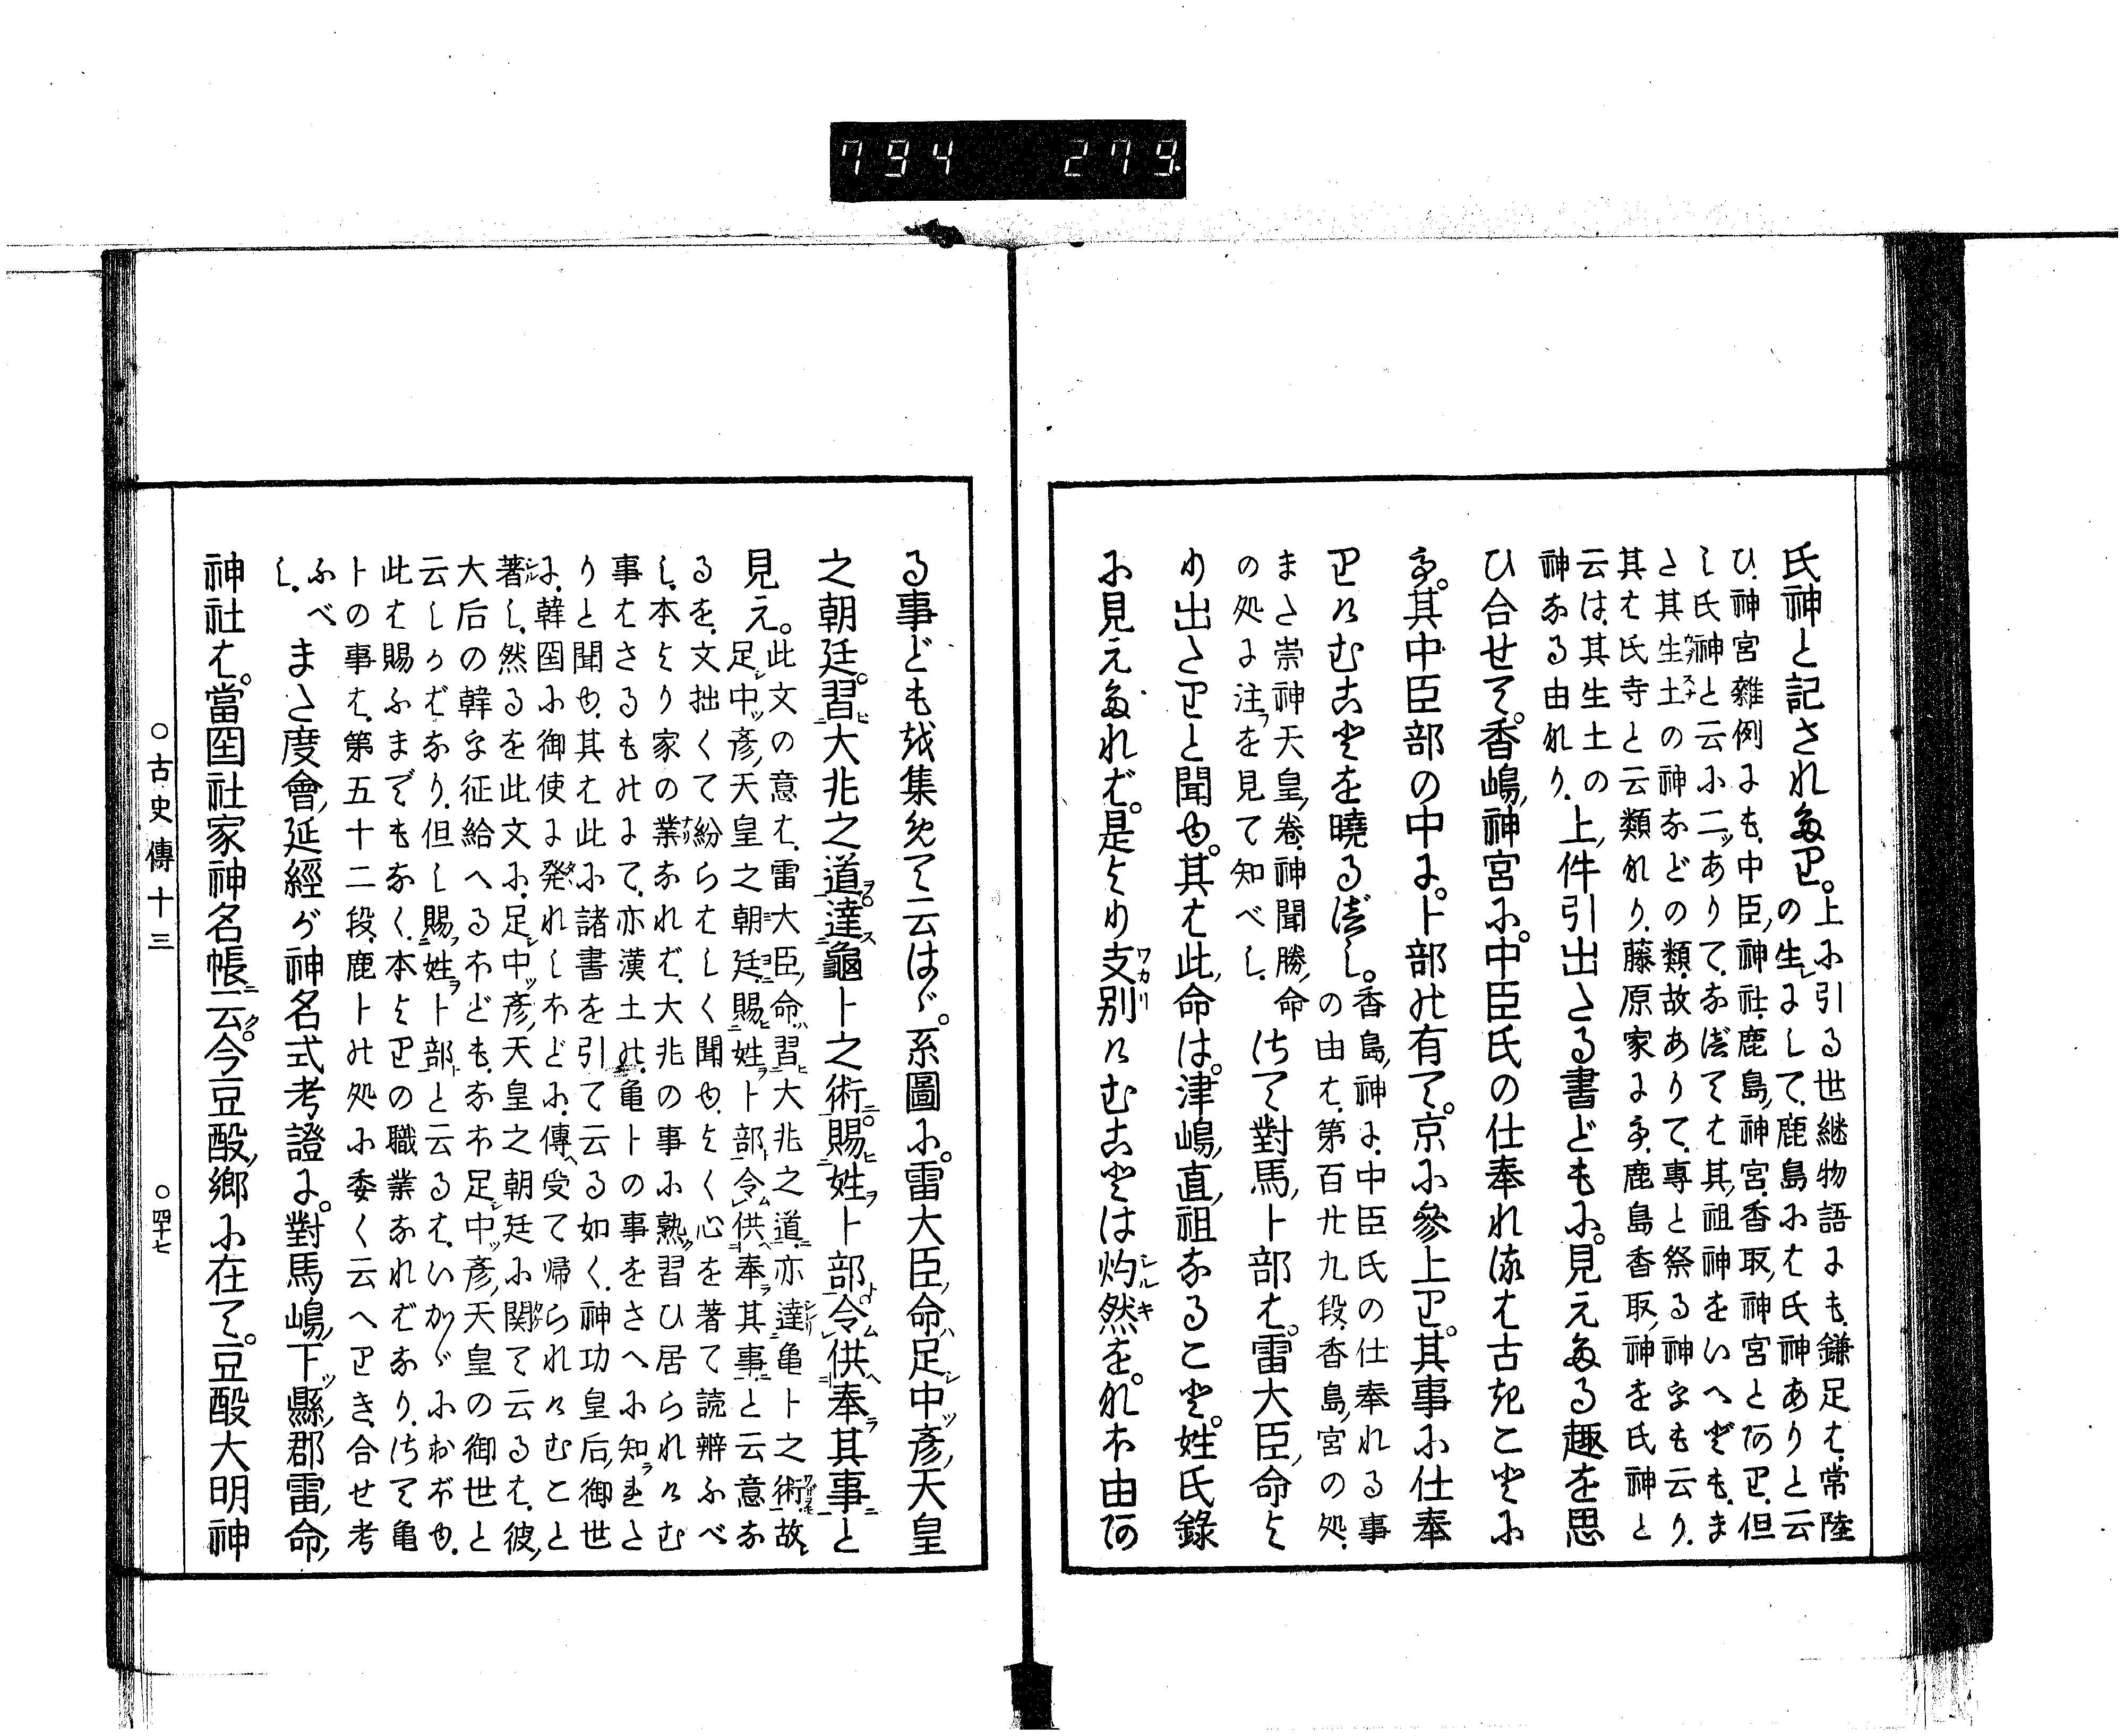 794 279
氏神と記されたり。上に引る世継物語にも、鎌足は、常陸
の生にして、鹿島には氏神ありと云
ひ、神宮雑例にも、中臣神社、鹿島神宮、香取神宮とあり、但
し氏神と云に二ッありて、なべては其祖神をいへども、ま
た其生土の神などの類、故ありて、専と祭る神をも云り、
其は氏寺と云類なり、藤原家にて、鹿島香取神を氏神と
云は、其生土の
神なる由なり、上件引出たる書どもに、見えたる趣を思
ひ合せて、香嶋神宮に、中臣氏の仕奉れるは古きことに
て。其中臣部の中に、卜部の有て、京に參上り、其事に仕奉
りけむことを曉るべし。香島神に、中臣氏の仕奉れる事
の由は、第百廿九段、香島宮の処、
また崇神天皇卷、神聞勝命
の処に注を見て知べし、さて對馬卜部は。雷大臣命より
り出たりと聞ゆ。其は此命は。津嶋直祖なること。姓氏錄
に見えたれば。是より支別けむことは灼然を。なほ由あ
る事ども を集めて云はゞ。系圖に。雷大臣命足中彥天皇
之朝廷。習大兆之道。達龜卜之術。賜姓卜部令供奉其事と
見え。此文の意は、雷大臣命習大兆之道亦達亀卜之術故
足中彥天皇之朝廷、賜姓卜部令供奉其事、と云意な
るを、文拙くて紛らはしく聞ゆ、よく心を著て読辨ふべ
し、本より家の業なれば、大兆の事に熟習ひ居られけむ
事はさるものにて、亦漢土の亀卜の事をさへに知れた
りと聞ゆ、其は此に諸書を引て云る如く、神功皇后御世
に、韓国に御使に発れしほどに、傳受て帰られけむこと
著し、然るを此文に、足中彥天皇之朝廷に関て云るは、彼
大后の韓を征給へるほども、なほ足中彥天皇の御世と
云しかばなり、但し賜姓卜部と云るは、いかゞにおぼゆ、
此は賜ふまでもなく、本よりの職業なればなり、さて亀
卜の事は、第五十二段、鹿卜の処に委く云へりき、合せ考
ふべ
し、また度會延經が神名式考證に。對馬嶋下縣郡雷命
神社は。當国社家神名帳云。今豆酘鄉に在て。豆酘大明神
○古史傳十三 ○四十七